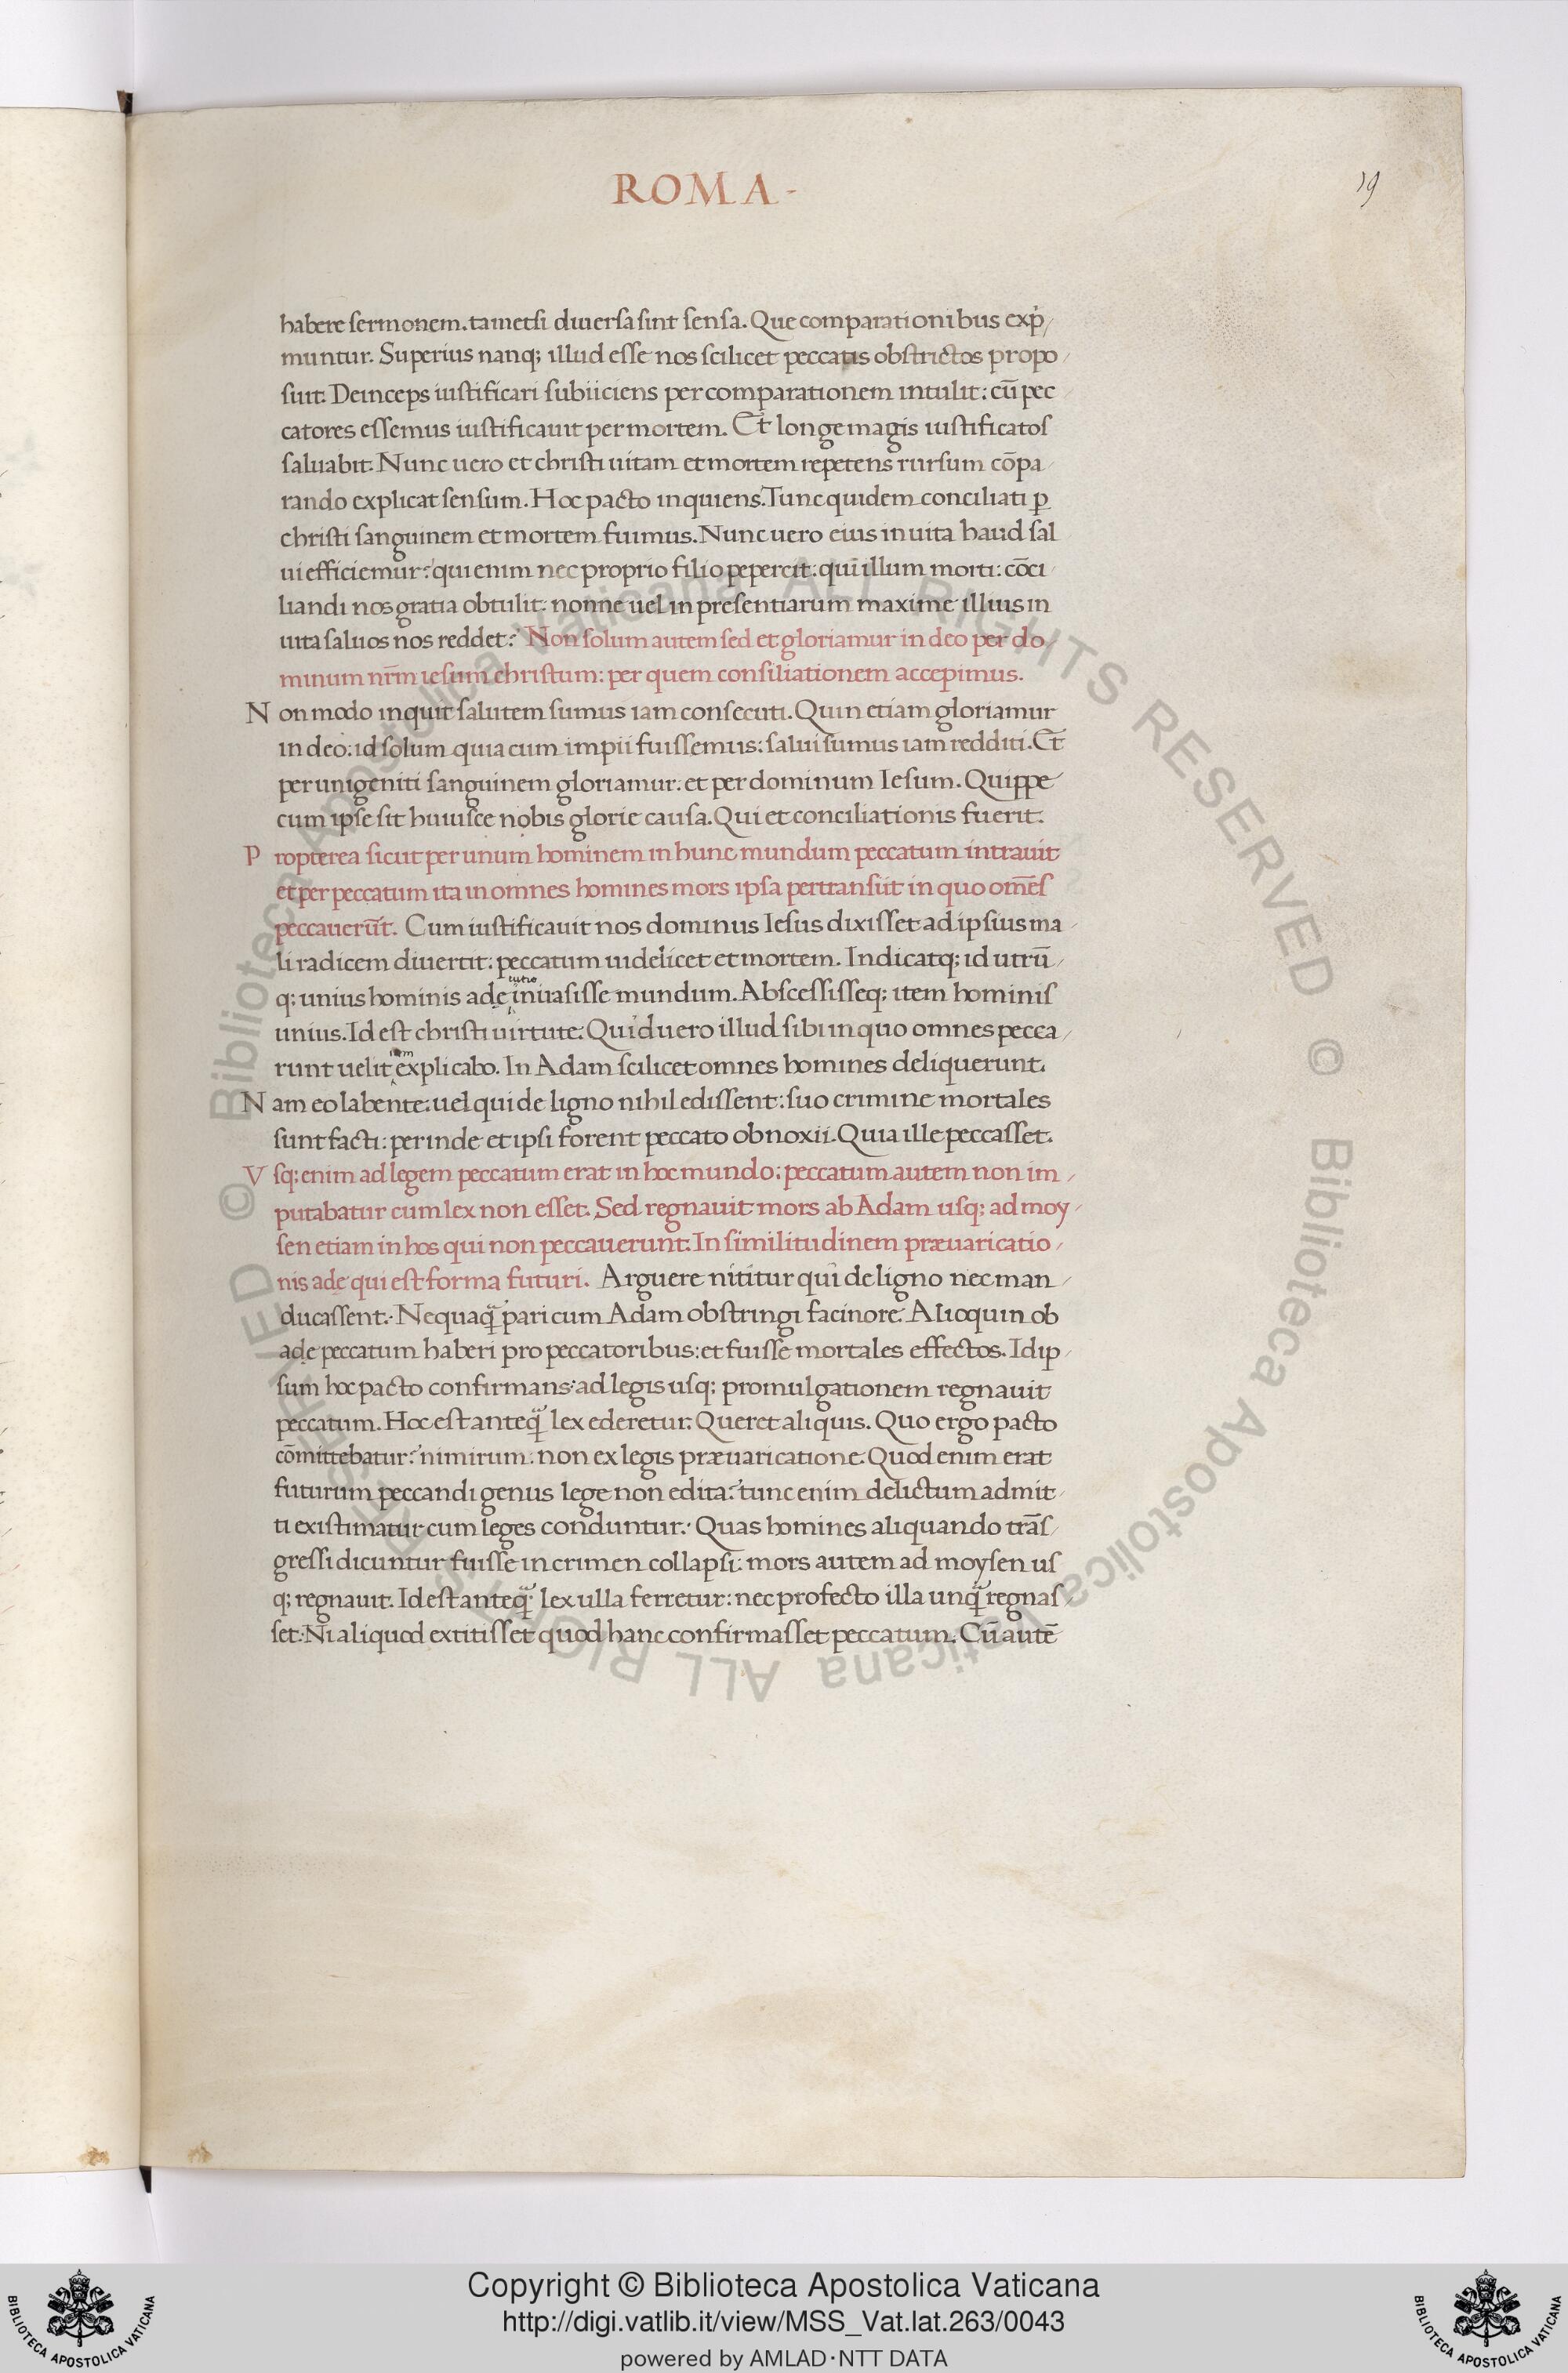 ROMA-
19
habere sermonem. tametsi diuersa sint sensa. Que comparationibus exp̍/
muntur. Superius nanq; illud esse nos scilicet peccatis obstrictos propo/
suit. Deinceps iustificari subiiciens per comparationem intulit: cū pec
catores essemus iustificauit per mortem. Et longe magis iustificatos
saluabit. Nunc uero et christi uitam et mortem repetens rursum cōpa/
rando explicat sensum. Hoc pacto inquiens. Tunc quidem conciliati ꝑ
christi sanguinem et mortem fuimus. Nunc uero eius in uita haud sal
ui efficiemur? qui enim nec proprio filio pepercit: qui illum morti: cōci/
liandi nos gratia obtulit: nonne uel in presentiarum maxime illius in
uita saluos nos reddet? Non solum autem sed et gloriamur in deo per do
minum nr̄m iesum christum: per quem consiliationem accepimus.
Non modo inquit salutem sumus iam consecuti. Quin etiam gloriamur
in deo: id solum quia cum impii fuissemus: salui sumus iam redditi. Et
per unigeniti sanguinem gloriamur: et per dominum Iesum. Quippe
cum ipse sit huiusce nobis glorie causa. Qui et conciliationis fuerit.
Propterea sicut per unum hominem in hunc mundum peccatum intrauit
et per peccatum ita in omnes homines mors ipsa pertransiit in quo omēs
peccauerūt. Cum iustificauit nos dominus Iesus dixisset ad ipsius ma/
li radicem diuertit: peccatum uidelicet et mortem. Indicatq; id utrū/
q; unius hominis adę inuasisse mundum. Abscessisseq; item hominis
unius. Id est christi uirtute. Quid uero illud sibi in quo omnes pecca/
runt uelit iam explicabo. In Adam scilicet omnes homines deliquerunt.
Nam eo labente: uel qui de ligno nihil edissent: suo crimine mortales
sunt facti: perinde et ipsi forent peccato obnoxii. Quia ille peccasset.
Vsq; enim ad legem peccatum erat in hoc mundo: peccatum autem non im/
putabatur cum lex non esset. Sed regnauit mors ab Adam usq; ad moy/
sen etiam in hos qui non peccauerunt. In similitudinem præuaricatio/
nis adę qui est forma futuri. Arguere nititur qui de ligno nec man/
ducassent. Nequaq̄ pari cum Adam obstringi facinore. Alioquin ob
adę peccatum haberi pro peccatoribus: et fuisse mortales effectos. Id ip/
sum hoc pacto confirmans: ad legis usq; promulgationem regnauit
peccatum. Hoc est anteq̄ lex ederetur. Queret aliquis. Quo ergo pacto
cōmittebatur? nimirum: non ex legis præuaricatione. Quod enim erat
futurum peccandi genus lege non edita? tunc enim delictum admit/
ti existimatur cum leges conduntur. Quas homines aliquando trās/
gressi dicuntur fuisse in crimen collapsi: mors autem ad moysen us
q; regnauit. Id est anteq̄ lex ulla ferretur: nec profecto illa unq̄ regnas/
set. Ni aliquod extitisset quod hanc confirmasset peccatum. Cū autē
© Biblioteca Apostolica Vaticana ALL RIGHTS RESERVED
© Biblioteca Apostolica Vaticana ALL RIGHTS RESERVED
Copyright © Biblioteca Apostolica Vaticana
http://digi.vatlib.it/view/MSS_Vat.lat.263/0043
powered by AMLAD·NTT DATA
BIBLIOTECA APOSTOLICA VATICANA
BIBLIOTECA APOSTOLICA VATICANA